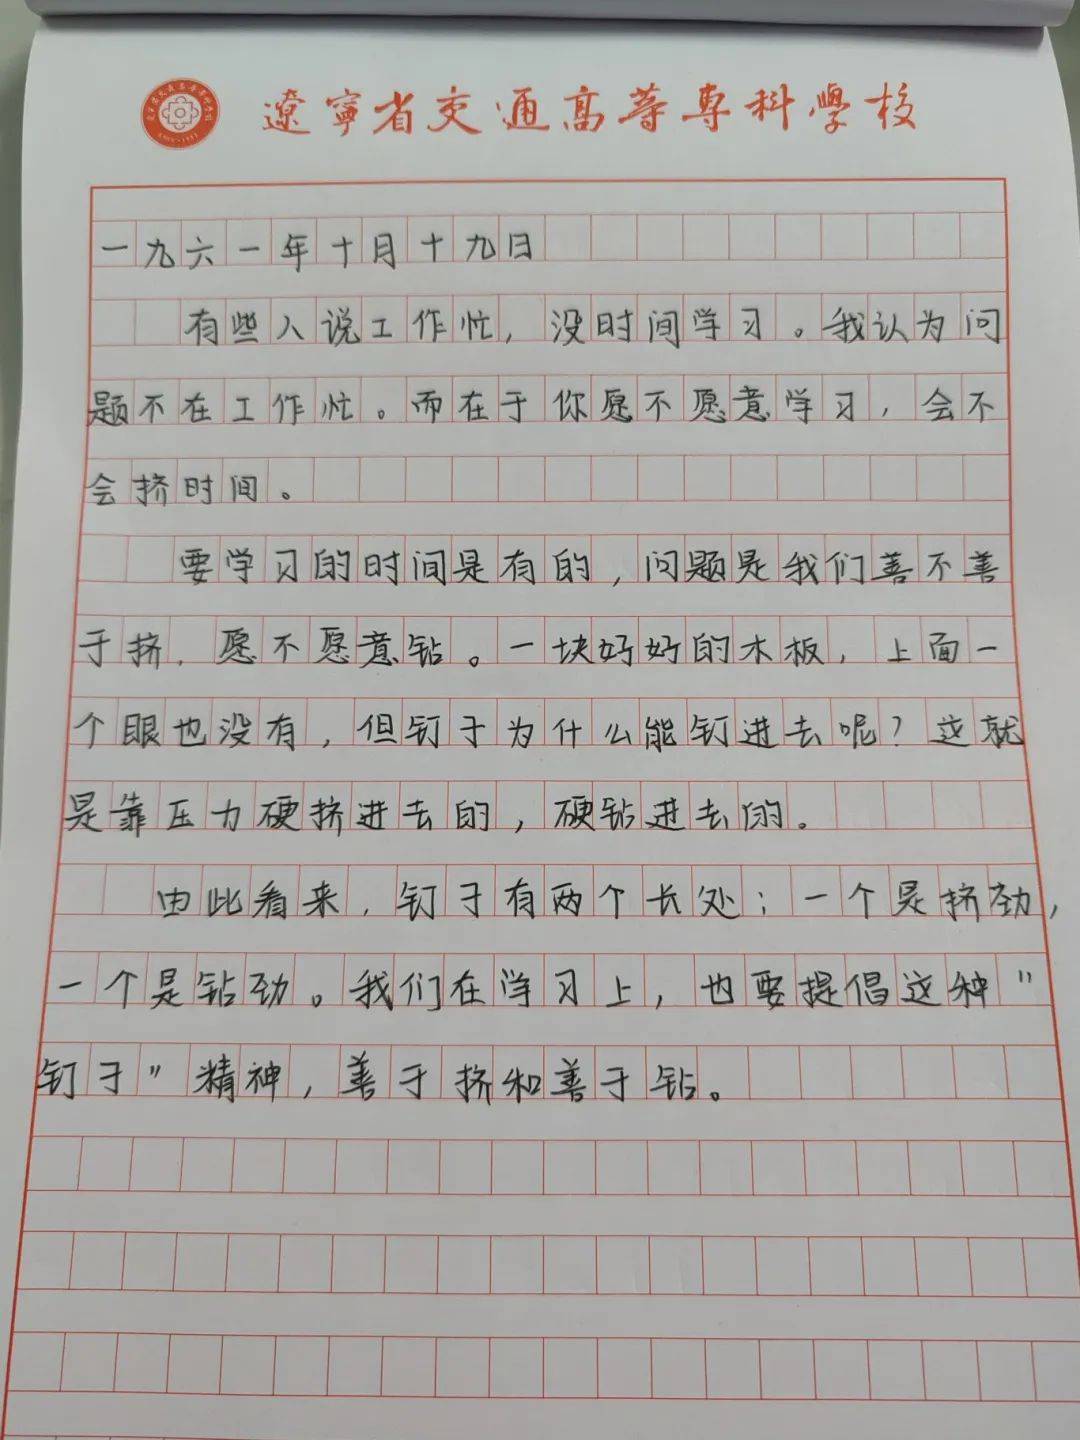 遼寧省交通高等專科學校
一九六一年十月十九日
有些人说工作忙，没时间学习。我认为问
题不在工作忙。而在于你愿不愿意学习，会不
会挤时间。
要学习的时间是有的，问题是我们善不善
于挤，愿不愿意钻。一块好好的木板，上面一
个眼也没有，但钉子为什么能钉进去呢？这就
是靠压力硬挤进去的，硬钻进去的。
由此看来，钉子有两个长处：一个是挤劲，
一个是钻劲。我们在学习上，也要提倡这种"
钉子"精神，善于挤和善于钻。